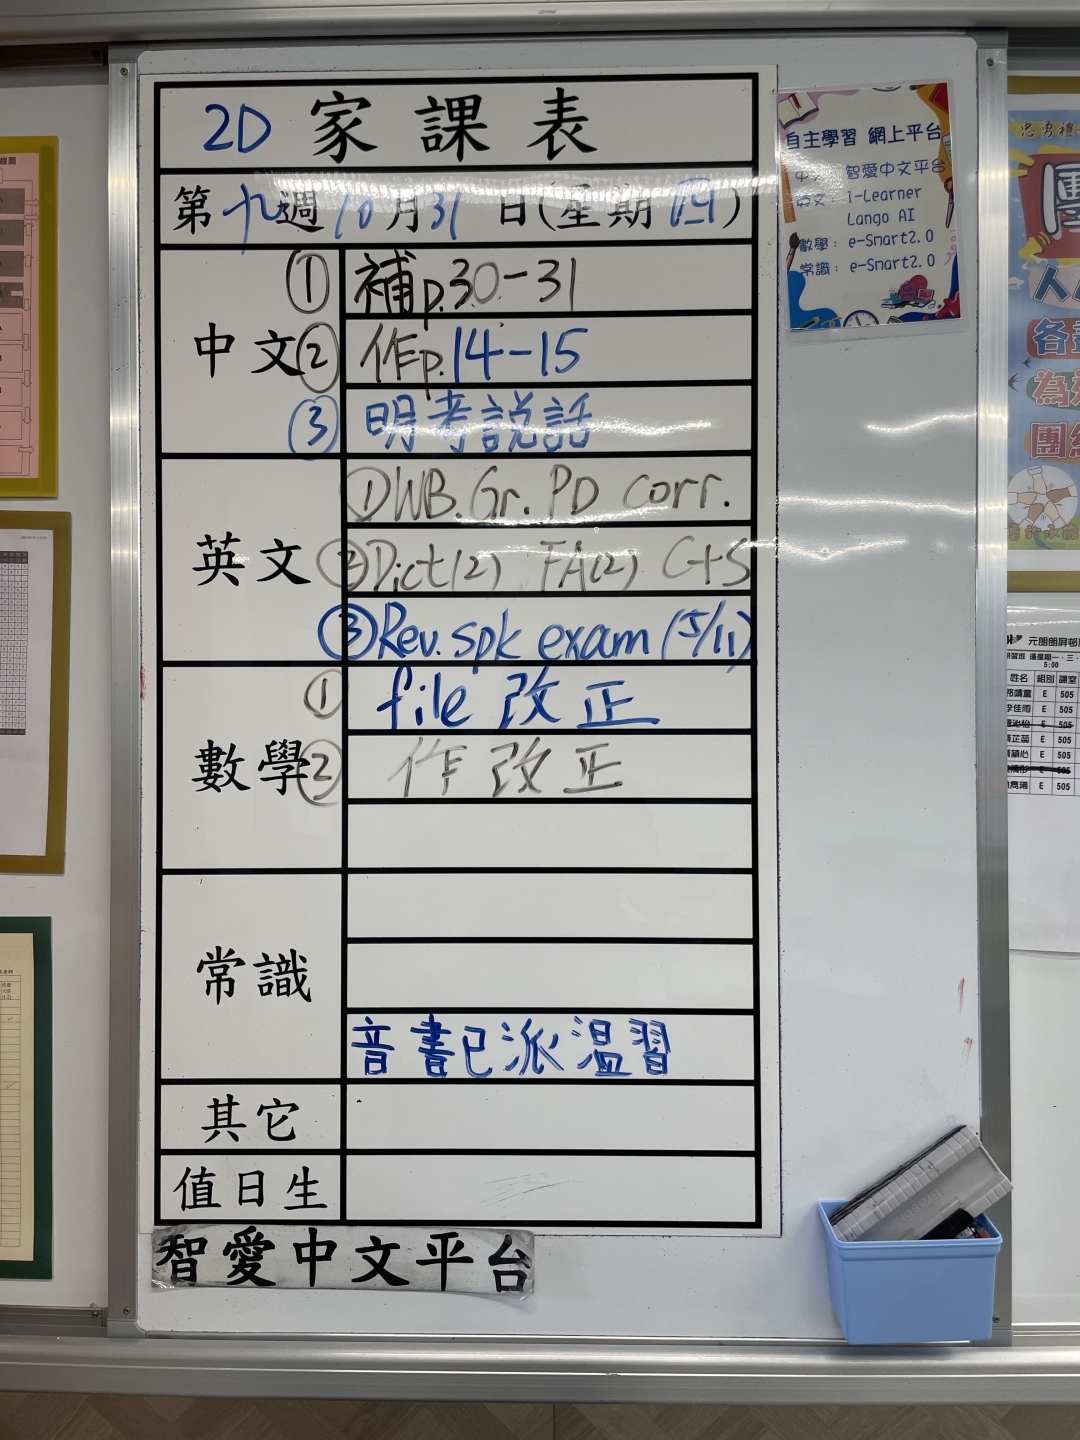 2D 家課表
第九週 10月31日(星期四)
中文
① 補p.30-31
② 作p.14-15
③ 明考說話
英文
① DWB. Gr. PD corr.
② Dict(2) FA(2) C+S
③ Rev. spk exam (5/11)
數學
① file 改正
② 作 改正
常識
音書已派溫習
其它
值日生
智愛中文平台
自主學習 網上平台
智愛中文平台
英文: i-Learner
Lango AI
數學: e-Smart2.0
常識: e-Smart2.0
忠勇禮
團
姓名 組別 課堂
E 505
E 505
E 505
E 505
E 505
E 505
E 505